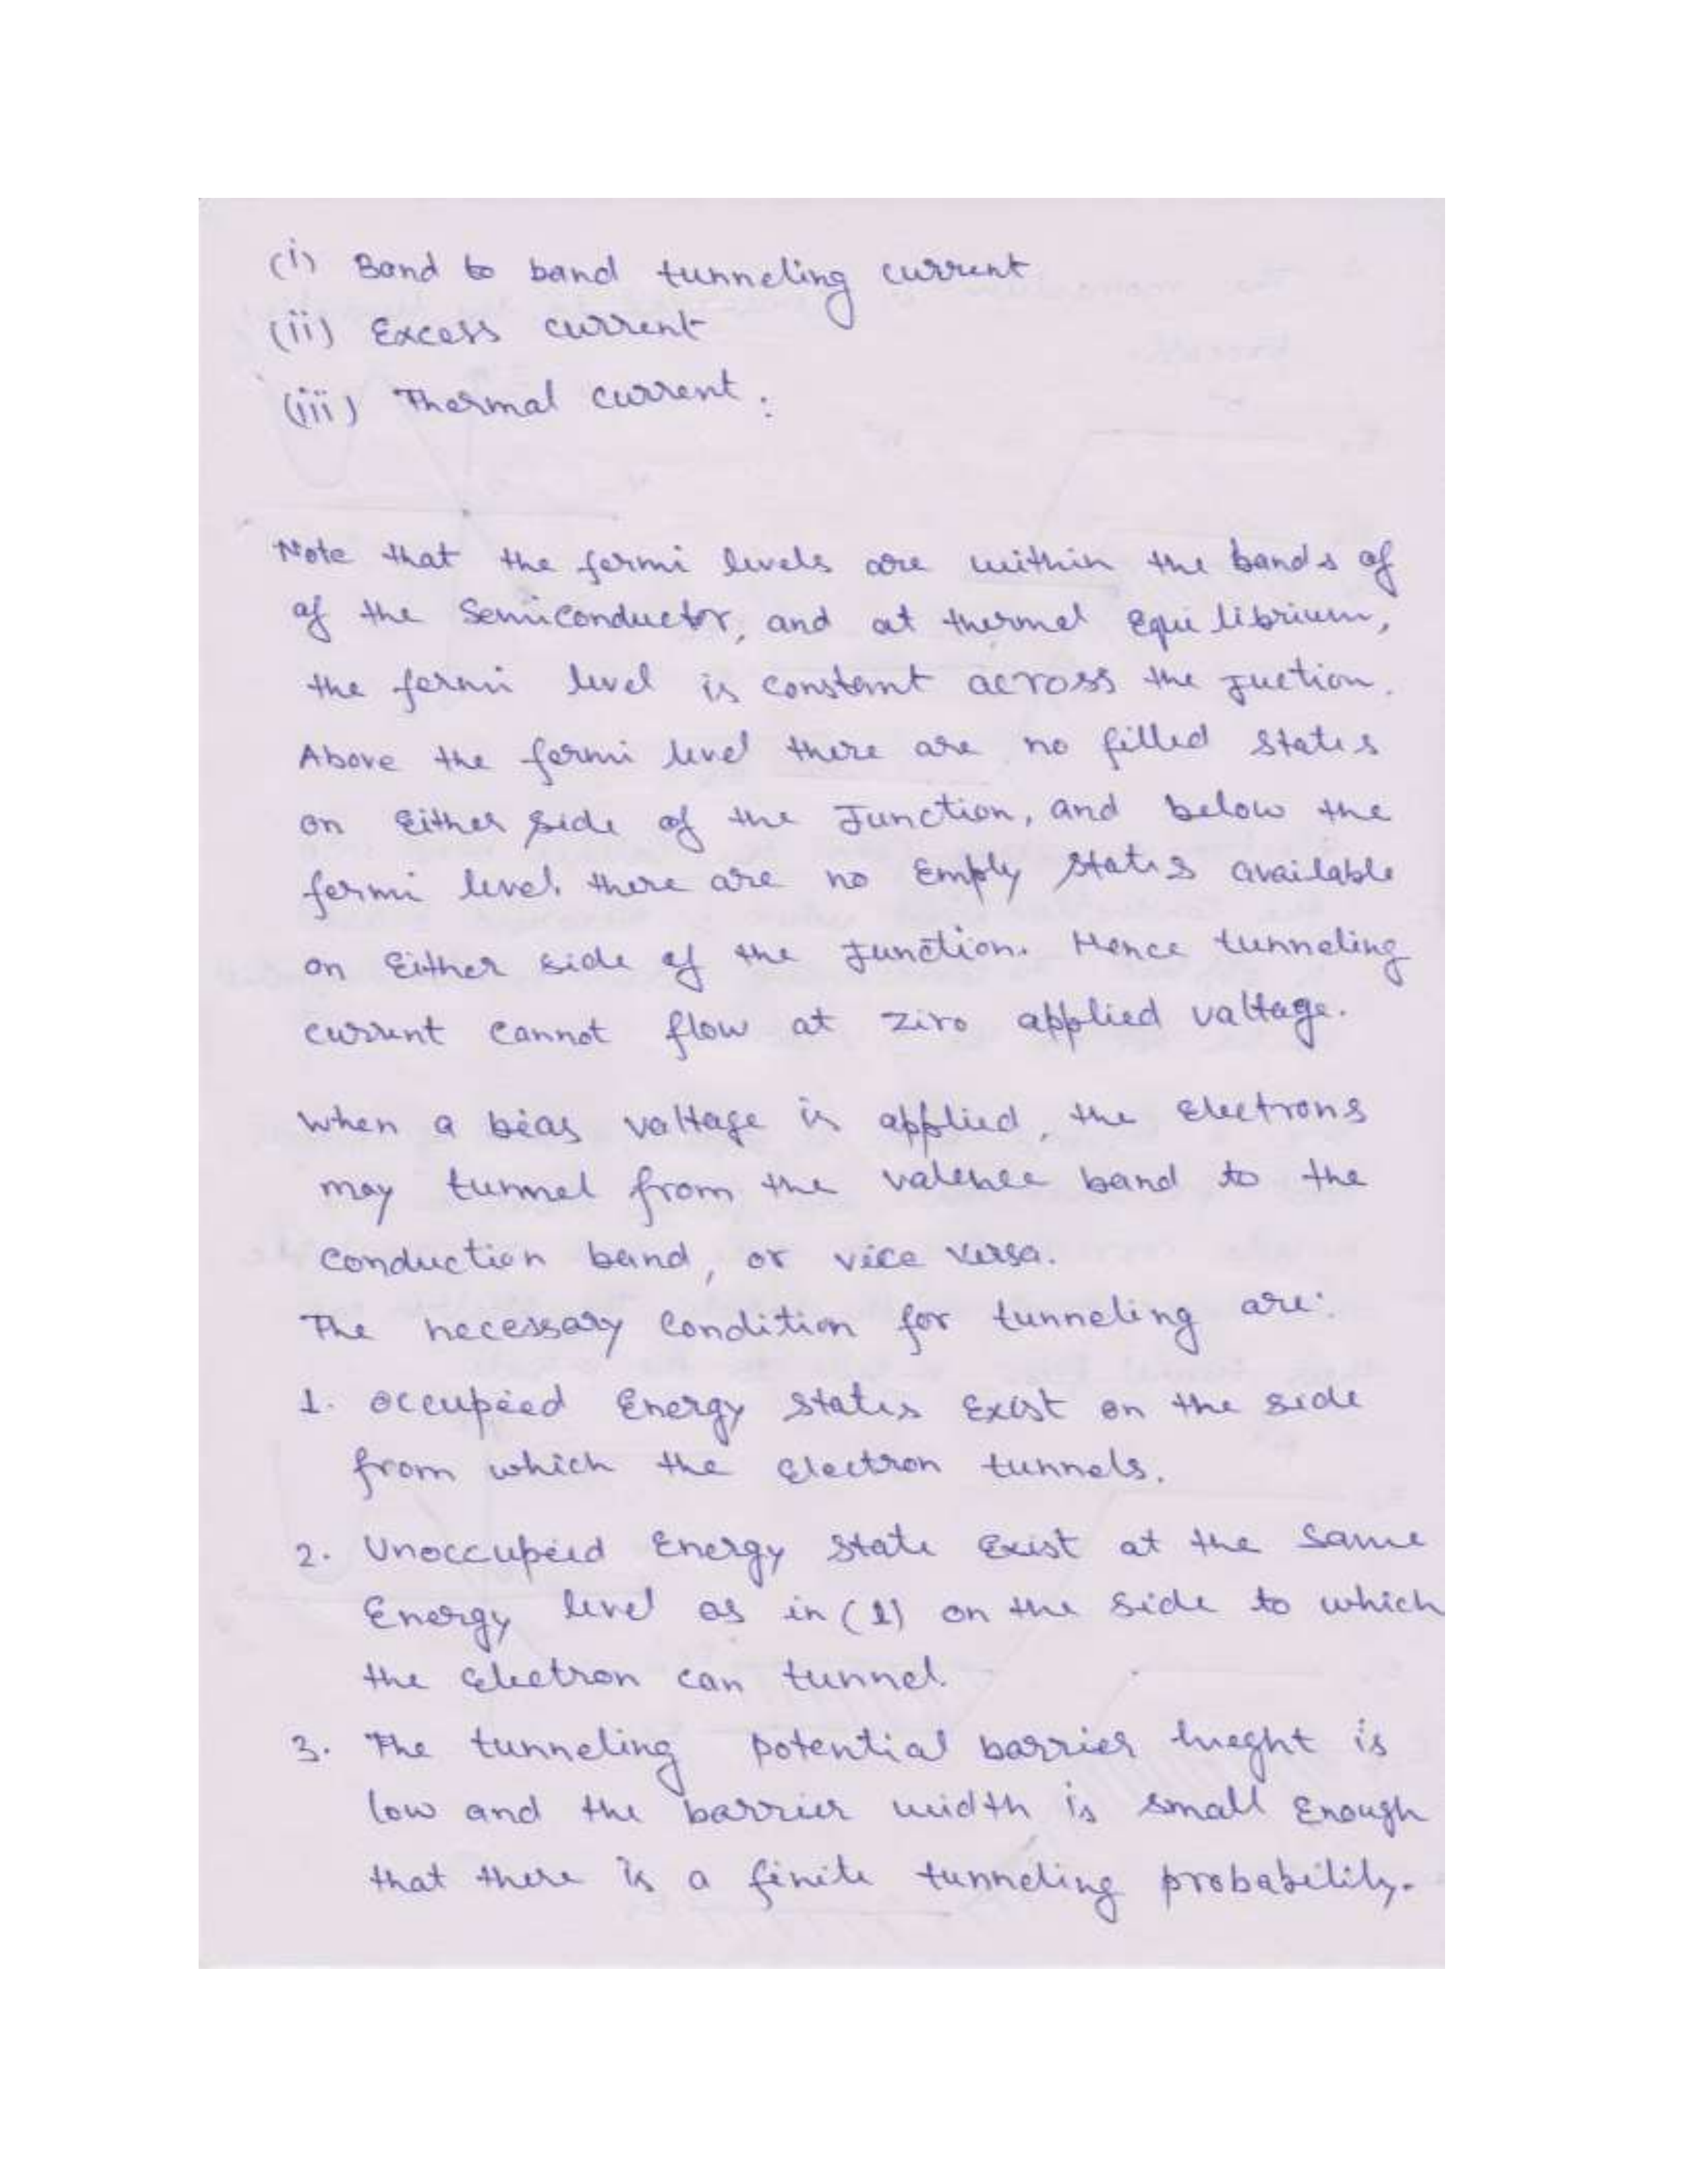 (i) Band to band tunneling current
(ii) Excess current
(iii) Thermal current.
Note that the fermi levels are within the bands of
of the Semiconductor, and at thermal Equilibrium,
the fermi level is constant across the juction.
Above the fermi level there are no filled states
on Either side of the Junction, and below the
fermi level there are no Empty states available
on Either side of the Junction. Hence tunneling
current cannot flow at ziro applied valtage.
When a bias voltage is applied, the Electrons
may tunnel from the valence band to the
Conduction band, or vice versa.
The necessary Condition for tunneling are:
1. occupied Energy states Exist on the side
from which the Electron tunnels.
2. Unoccupied Energy state Exist at the same
Energy level as in (1) on the side to which
the Electron can tunnel.
3. The tunneling potential barrier hieght is
low and the barrier width is small Enough
that there is a finite tunneling probability.